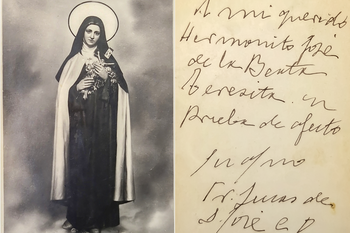 A mi querido
Hermanito José
de la Beata
Teresita en
prueba de afecto
Fr. Lucas de
S. José C D